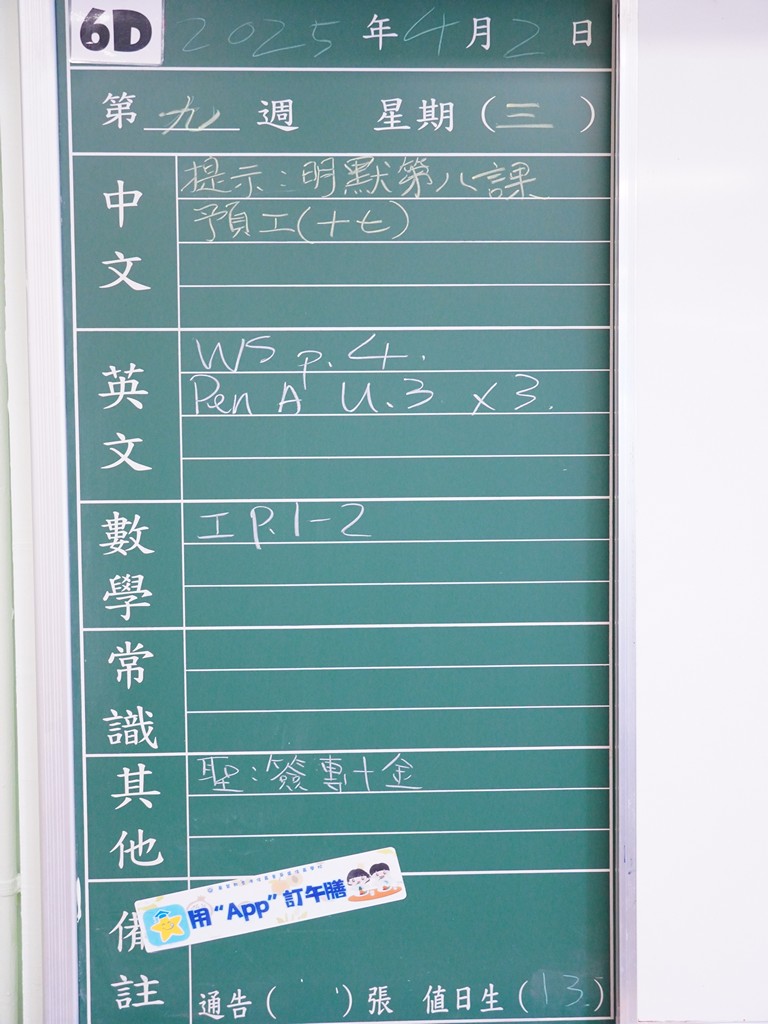 6D 2025年4月2日
第九週 星期(三)
中文
提示:明默第八課
預工(十七)
英文
WS p.4.
Pen A U.3 x3.
數學
工 P.1-2
常識
其他
聖:簽專+金
備註
用“App”訂午膳
通告( )張 值日生(13)